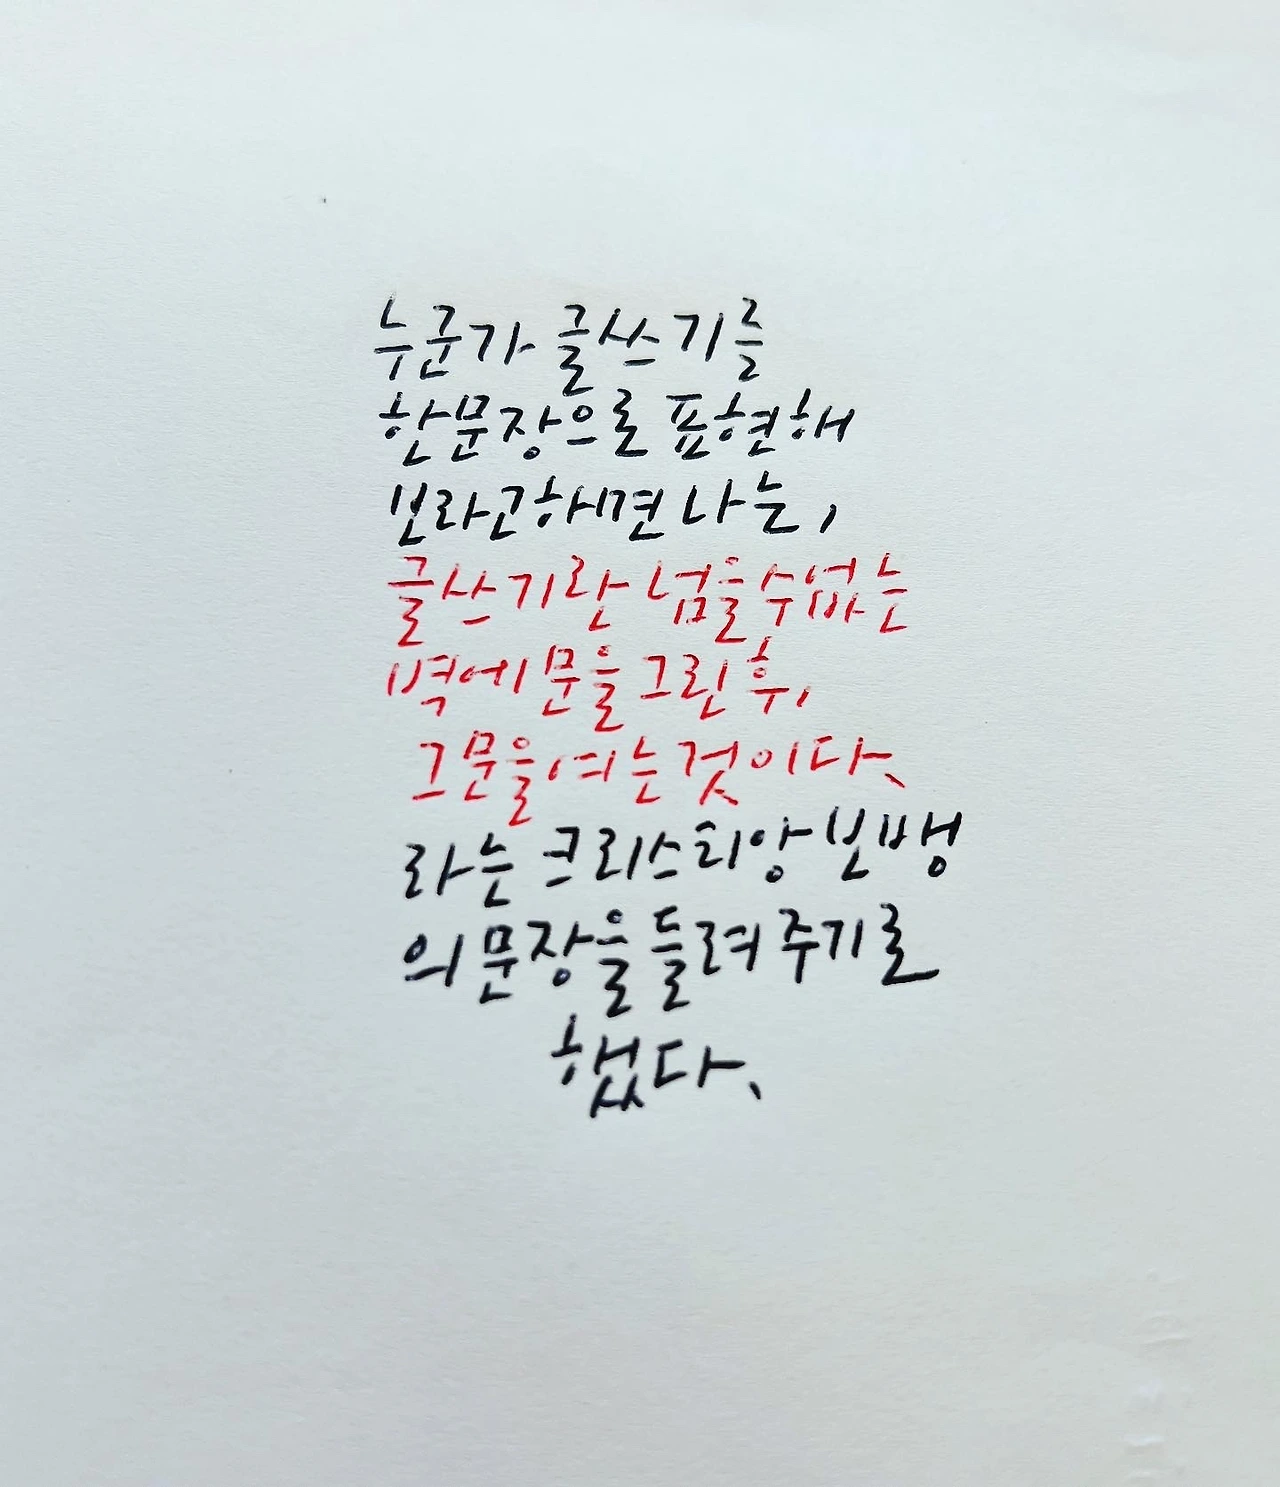 누군가 글쓰기를
한문장으로 표현해
보라고하면 나는,
글쓰기란 넘을수없는
벽에 문을 그린 후,
그 문을 여는 것이다.
라는 크리스티앙 보뱅
의 문장을 들려 주기로
했다.